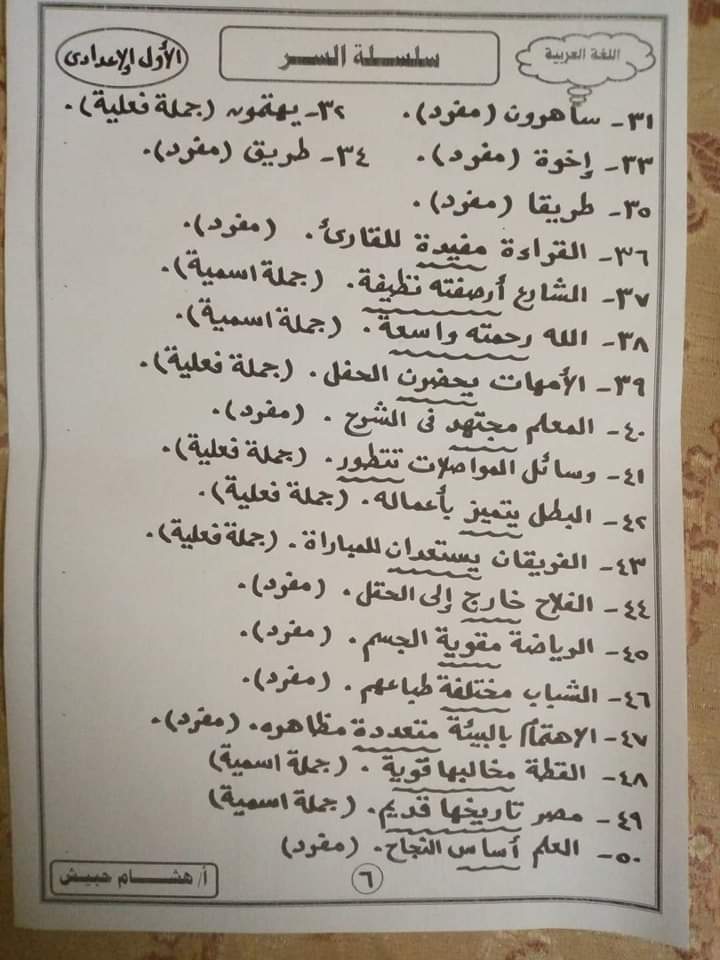 اللغة العربية سلسلة السر الأول الإعدادى
٣١- ساهرون (مفرد). ٣٢- يهتمون (جملة فعلية).
٣٣- إخوة (مفرد). ٣٤- طريق (مفرد).
٣٥- طريقا (مفرد).
٣٦- القراءة مفيدة للقارئ. (مفرد).
٣٧- الشارع أرصفته نظيفة. (جملة اسمية).
٣٨- الله رحمته واسعة. (جملة اسمية).
٣٩- الأمهات يحضرن الحفل. (جملة فعلية).
٤٠- المعلم مجتهد فى الشرح. (مفرد).
٤١- وسائل المواصلات تتطور. (جملة فعلية).
٤٢- البطل يتميز بأعماله. (جملة فعلية).
٤٣- الفريقان يستعدان للمباراة. (جملة فعلية).
٤٤- الفلاح خارج إلى الحقل. (مفرد).
٤٥- الرياضة مقوية الجسم. (مفرد).
٤٦- الشباب مختلفة طباعهم. (مفرد).
٤٧- الاهتمام بالبيئة متعددة مظاهره. (مفرد).
٤٨- القطة مخالبها قوية. (جملة اسمية)
٤٩- مصر تاريخها قديم. (جملة اسمية)
٥٠- العلم أساس النجاح. (مفرد)
٦ أ/ هشام حبيش